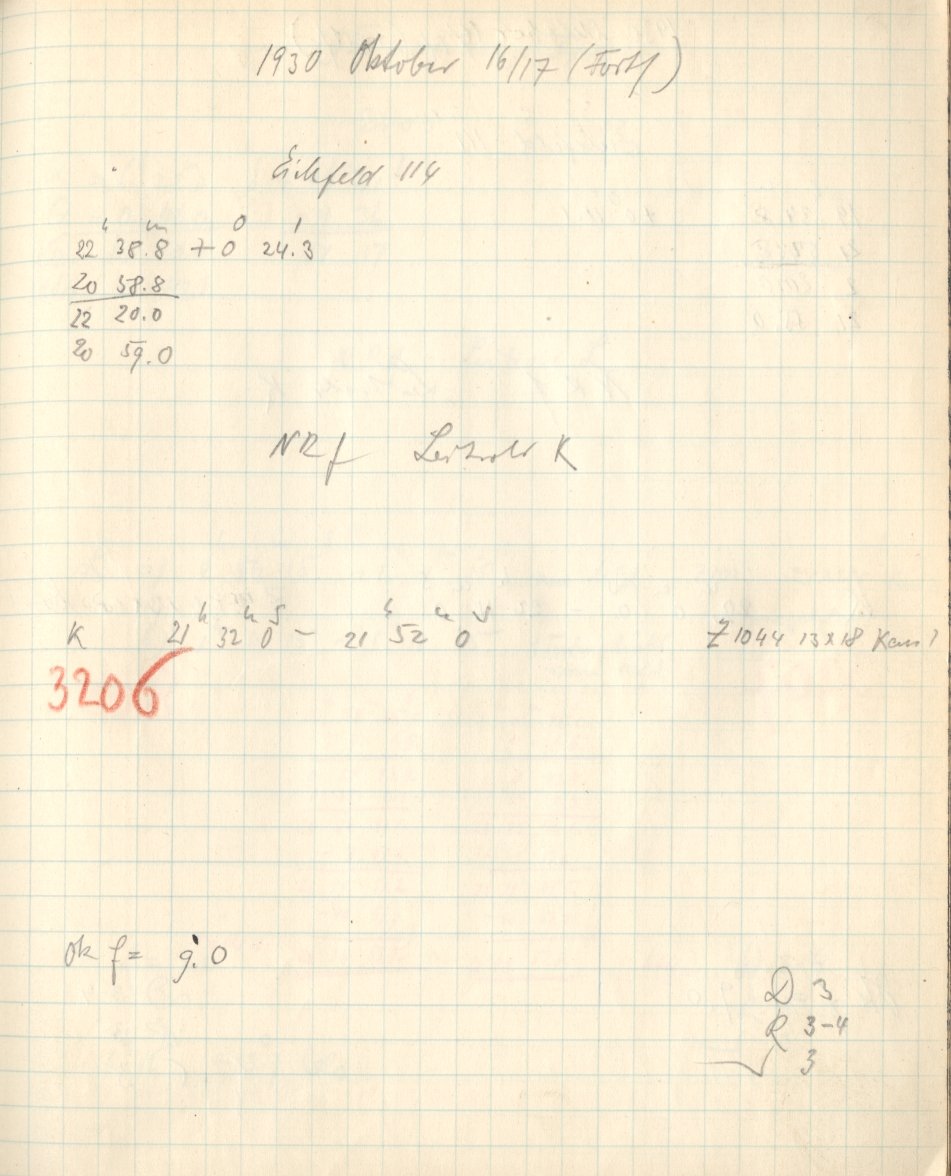 1930 Oktober 16/17 (Forts)
Eichfeld 114
22h 38.8m + 0° 24.3'
20 58.8
22 20.0
20 59.0
NRf K
K 21h 32m 0s - 21h 52m 0s Z 1044 13x18
3206
Ok f = 9.0
D 3
R 3-4
3